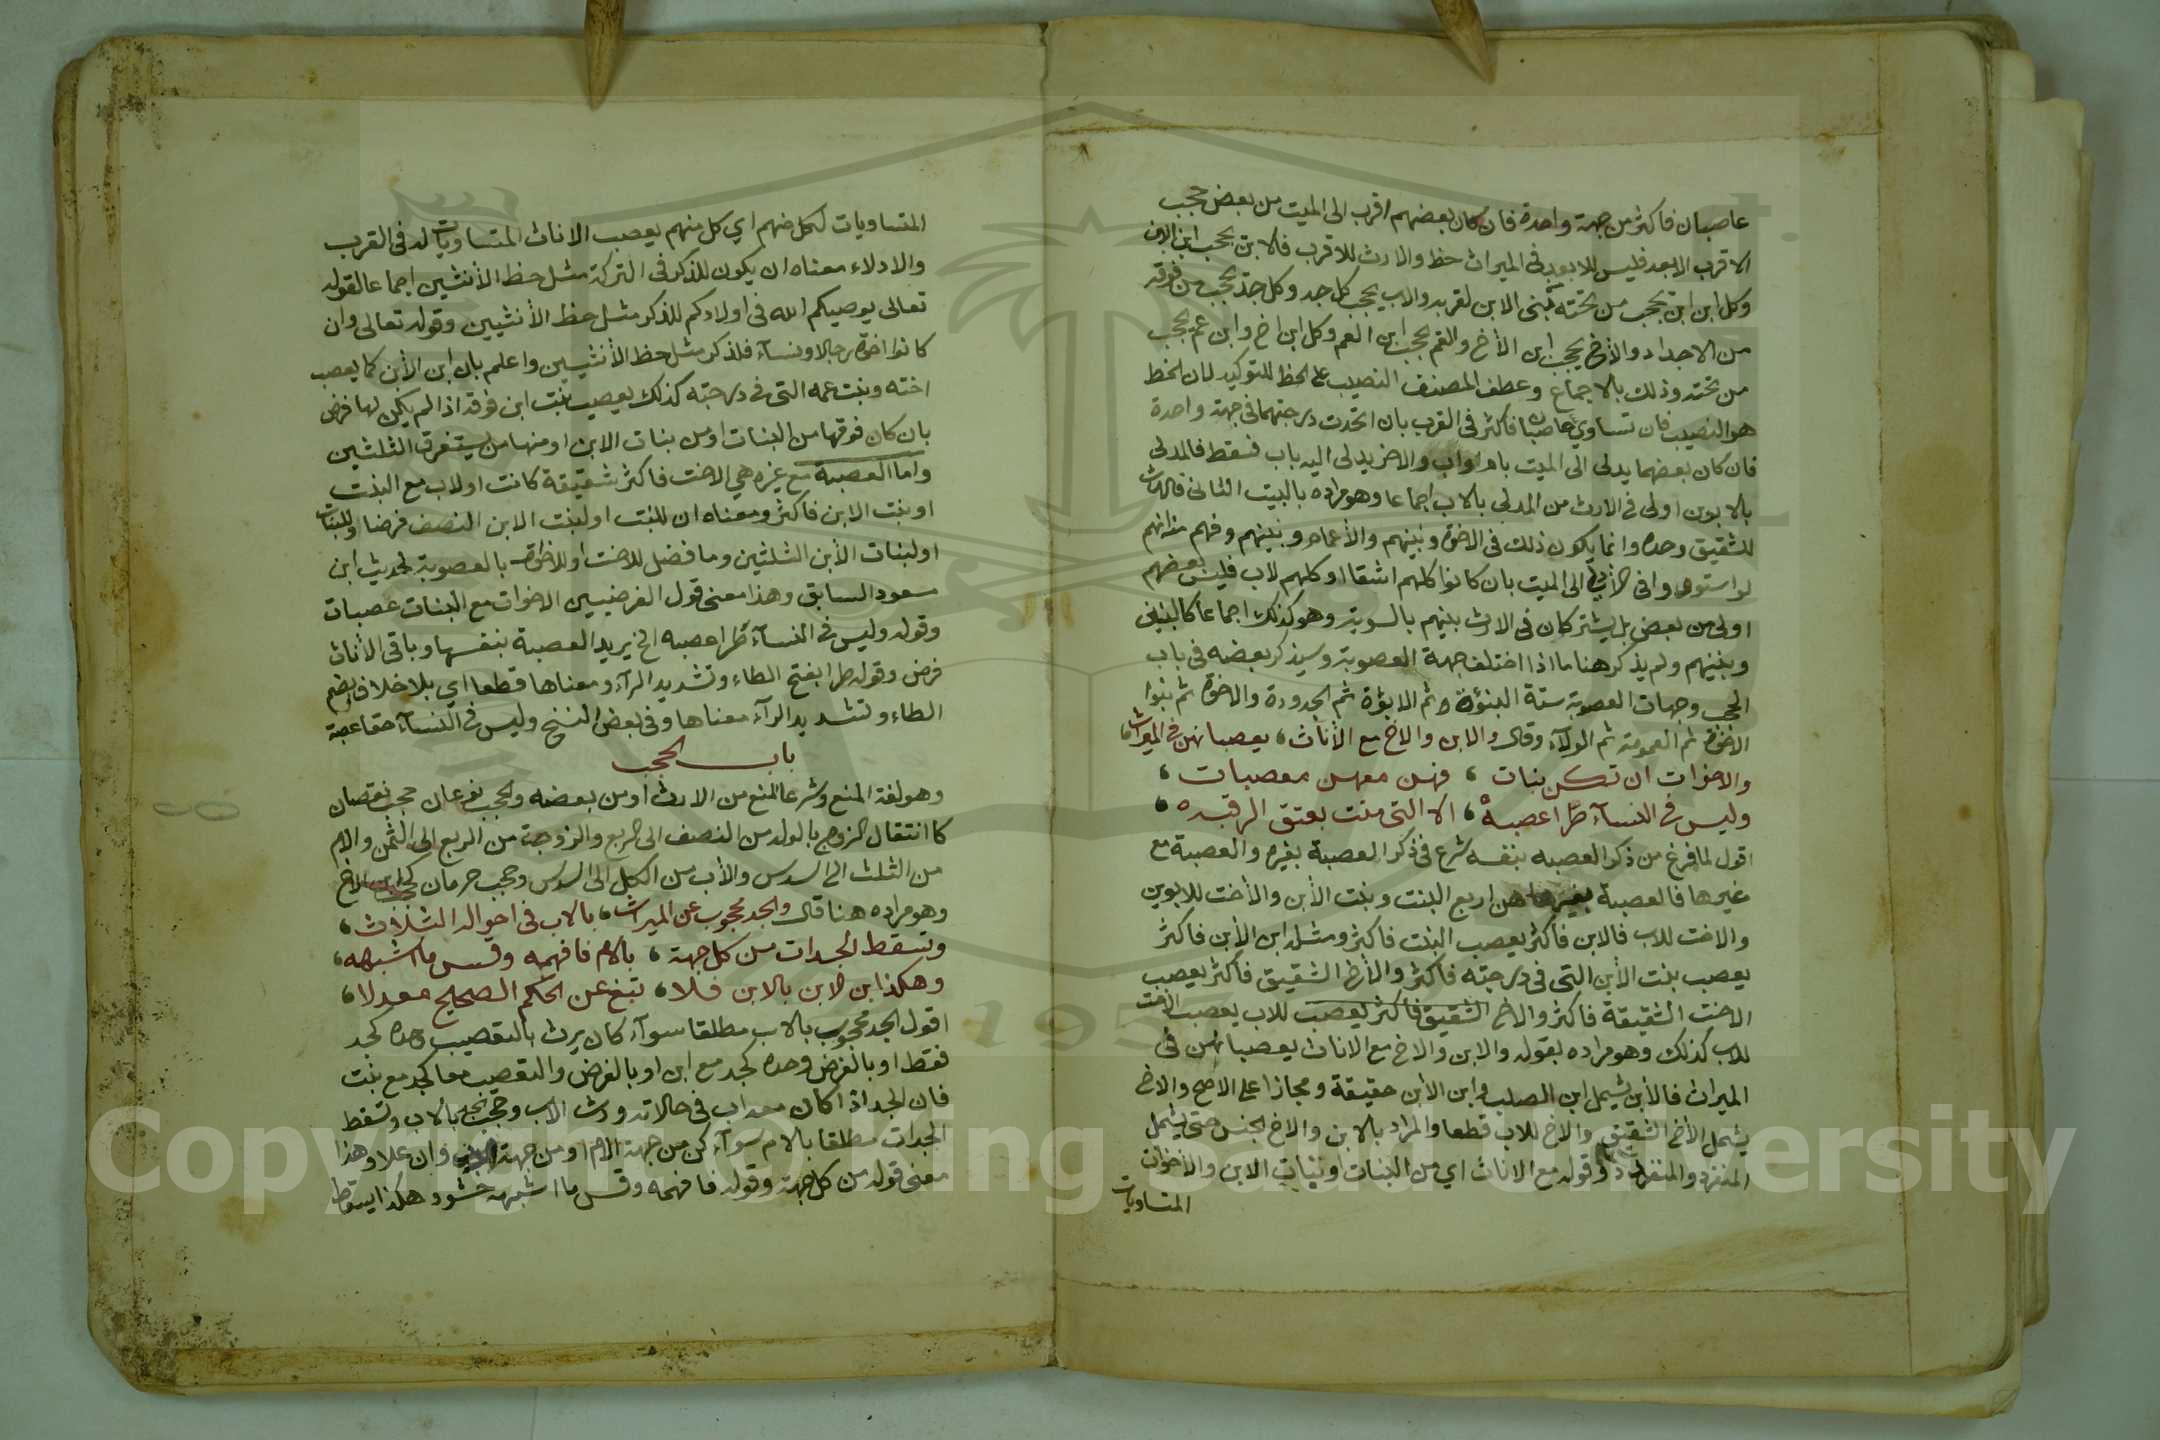 عاصبان فاكثر من جهة واحدة فان كان بعضهم اقرب الى الميت من بعض حجب
الاقرب الابعد فليس للابعد في الميراث حظ والارث للاقرب فالابن يحجب ابن الابن
وكل ابن ابن يحجب من تحته بني الابن لقربه والاب يحجب كل جد وكل جد يحجب من فوقه
من الاجداد والأخ يحجب ابن الأخ والعم يحجب ابن العم وكل ابن اخ وابن عم يحجب
من تحته وذلك بالاجماع وعطف المصنف النصيب على الحظ للتوكيد لان الحظ
هو النصيب فان تساوي عاصبان فاكثر في القرب بان اتحدت درجتهما في جهة واحدة
فان كان بعضهما يدلى الى الميت بام واب والاخر يدلى اليه باب فسقط فالمدلى
بالابوين اولى في الارث من المدلى بالاب اجماعا وهو مراده بالبيت الثاني فالميراث
للشقيق وحده وانما يكون ذلك في الاخوة وبنيهم والأعمام وبنيهم وفهم منه انهم
لو استووا في الأدلا الى الميت بان كانوا كلهم اشقا او كلهم لاب فليس بعضهم
اولى من بعض بل يشتركان في الارث بينهم بالسوية وهو كذلك اجماعا كالبنين
وبنيهم ولم يذكر هنا ما اذا اختلف جهة العصوبة وسيذكر بعضه في باب
الحجب وجهات العصوبة ستة البنوة ثم الابوة ثم الجدودة والاخوة ثم بنوا
الاخوة ثم العمومة ثم الولاء وقال والابن والاخ مع الأناث، يعصبانهن في الميراث،
والاخوات ان تكن بنات، فهن معهن معصبات،
وليس في النسآء طرا عصبة، الا التي منت بعتق الرقبه،
اقول لما فرغ من ذكر العصبه بنفسه شرع في ذكر العصبة بغيره والعصبة مع
غيرها فالعصبة بغيرها هن اربع البنت وبنت الأبن والأخت للابوين
والاخت للاب فالابن فاكثر يعصب البنت فاكثر ومثله ابن الأبن فاكثر
يعصب بنت الأبن التي في درجته فاكثر والأخ الشقيق فاكثر يعصب
الاخت الشقيقة فاكثر والاخ الشقيق فاكثر يعصب للاب يعصب الاخت
للاب كذلك وهو مراده بقوله والابن والاخ مع الاناث يعصبانهن في
الميراث فالأبن يشمل ابن الصلب وابن الأبن حقيقة ومجازا على الاصح والاخ
يشمل الأخ الشقيق والاخ للاب قطعا والمراد بالابن والاخ الجنس حتى يشمل
المنفرد والمتعدد وقوله مع الاناث اي من البنات او بنات الابن والأخوات
المتساويات
المتساويات لكل منهم اي كل منهم يعصب الاناث المتساويات له في القرب
والادلاء معناه ان يكون للذكر في التركة مثل حظ الأنثيين اجماعا لقوله
تعالى يوصيكم الله في اولادكم للذكر مثل حظ الأنثيين وقوله تعالى وان
كانوا اخوة رجالا ونسآء فللذكر مثل حظ الأنثيين واعلم بان ابن الأبن كما يعصب
اخته وبنت عمه التي في درجته كذلك يعصب بنت ابن فوقه اذا لم يكن لها فرض
بان كان فوقها من البنات او من بنات الابن او منهما من يستغرق الثلثين
واما العصبة مع غيره هي الاخت فاكثر شقيقة كانت او لاب مع البنت
او بنت الابن فاكثر ومعناه ان للبنت او لبنت الابن النصف فرضا وللبنات
او لبنات الأبن الثلثين وما فضل للاخت او للاخوات بالعصوبة لحديث ابن
مسعود السابق وهذا معنى قول الفرضيين الاخوات مع البنات عصبات
وقوله وليس في النسآء طرا عصبه الخ يريد العصبة بنفسها وباقي الأناث
فرض وقوله طرا بفتح الطاء وتشديد الرآء ومعناها قطعا اي بلا خلاف وبضم
الطاء وتشديد الرآء معناها وفي بعض النسخ وليس في النسآء حقا عصبة
باب الحجب
وهو لغة المنع وشرعا المنع من الارث او من بعضه والحجب نوعان حجب نقصان
كانتقال الزوج بالولد من النصف الى الربع والزوجة من الربع الى الثمن والام
من الثلث الى السدس والأب من الكل الى السدس وحجب حرمان كحجب ابن الاخ
وهو مراده هنا قال والجد محجوب عن الميراث، بالاب في احواله الثلاث،
وتسقط الجدات من كل جهة، بالام فافهمه وقس ما اشبهه،
وهكذا ابن الابن بالابن فلا، تبغ عن الحكم الصحيح معدلا،
اقول الجد محجوب بالاب مطلقا سوآء كان يرث بالتعصيب وحده كجد
فقط او بالفرض وحده كجد مع ابن او بالفرض والتعصيب معا كجد مع بنت
فان الجد اذا كان معه اب في حالاته ورث الاب وحجب الجد بالاب وتسقط
الجدات مطلقا بالام سوآء كن من جهة الام او من جهة وان علا وهذا
معنى قوله من كل جهة وقوله فافهمه وقس ما اشبهه حشو وهكذا يسقط
Copyright © King Saud University
1957